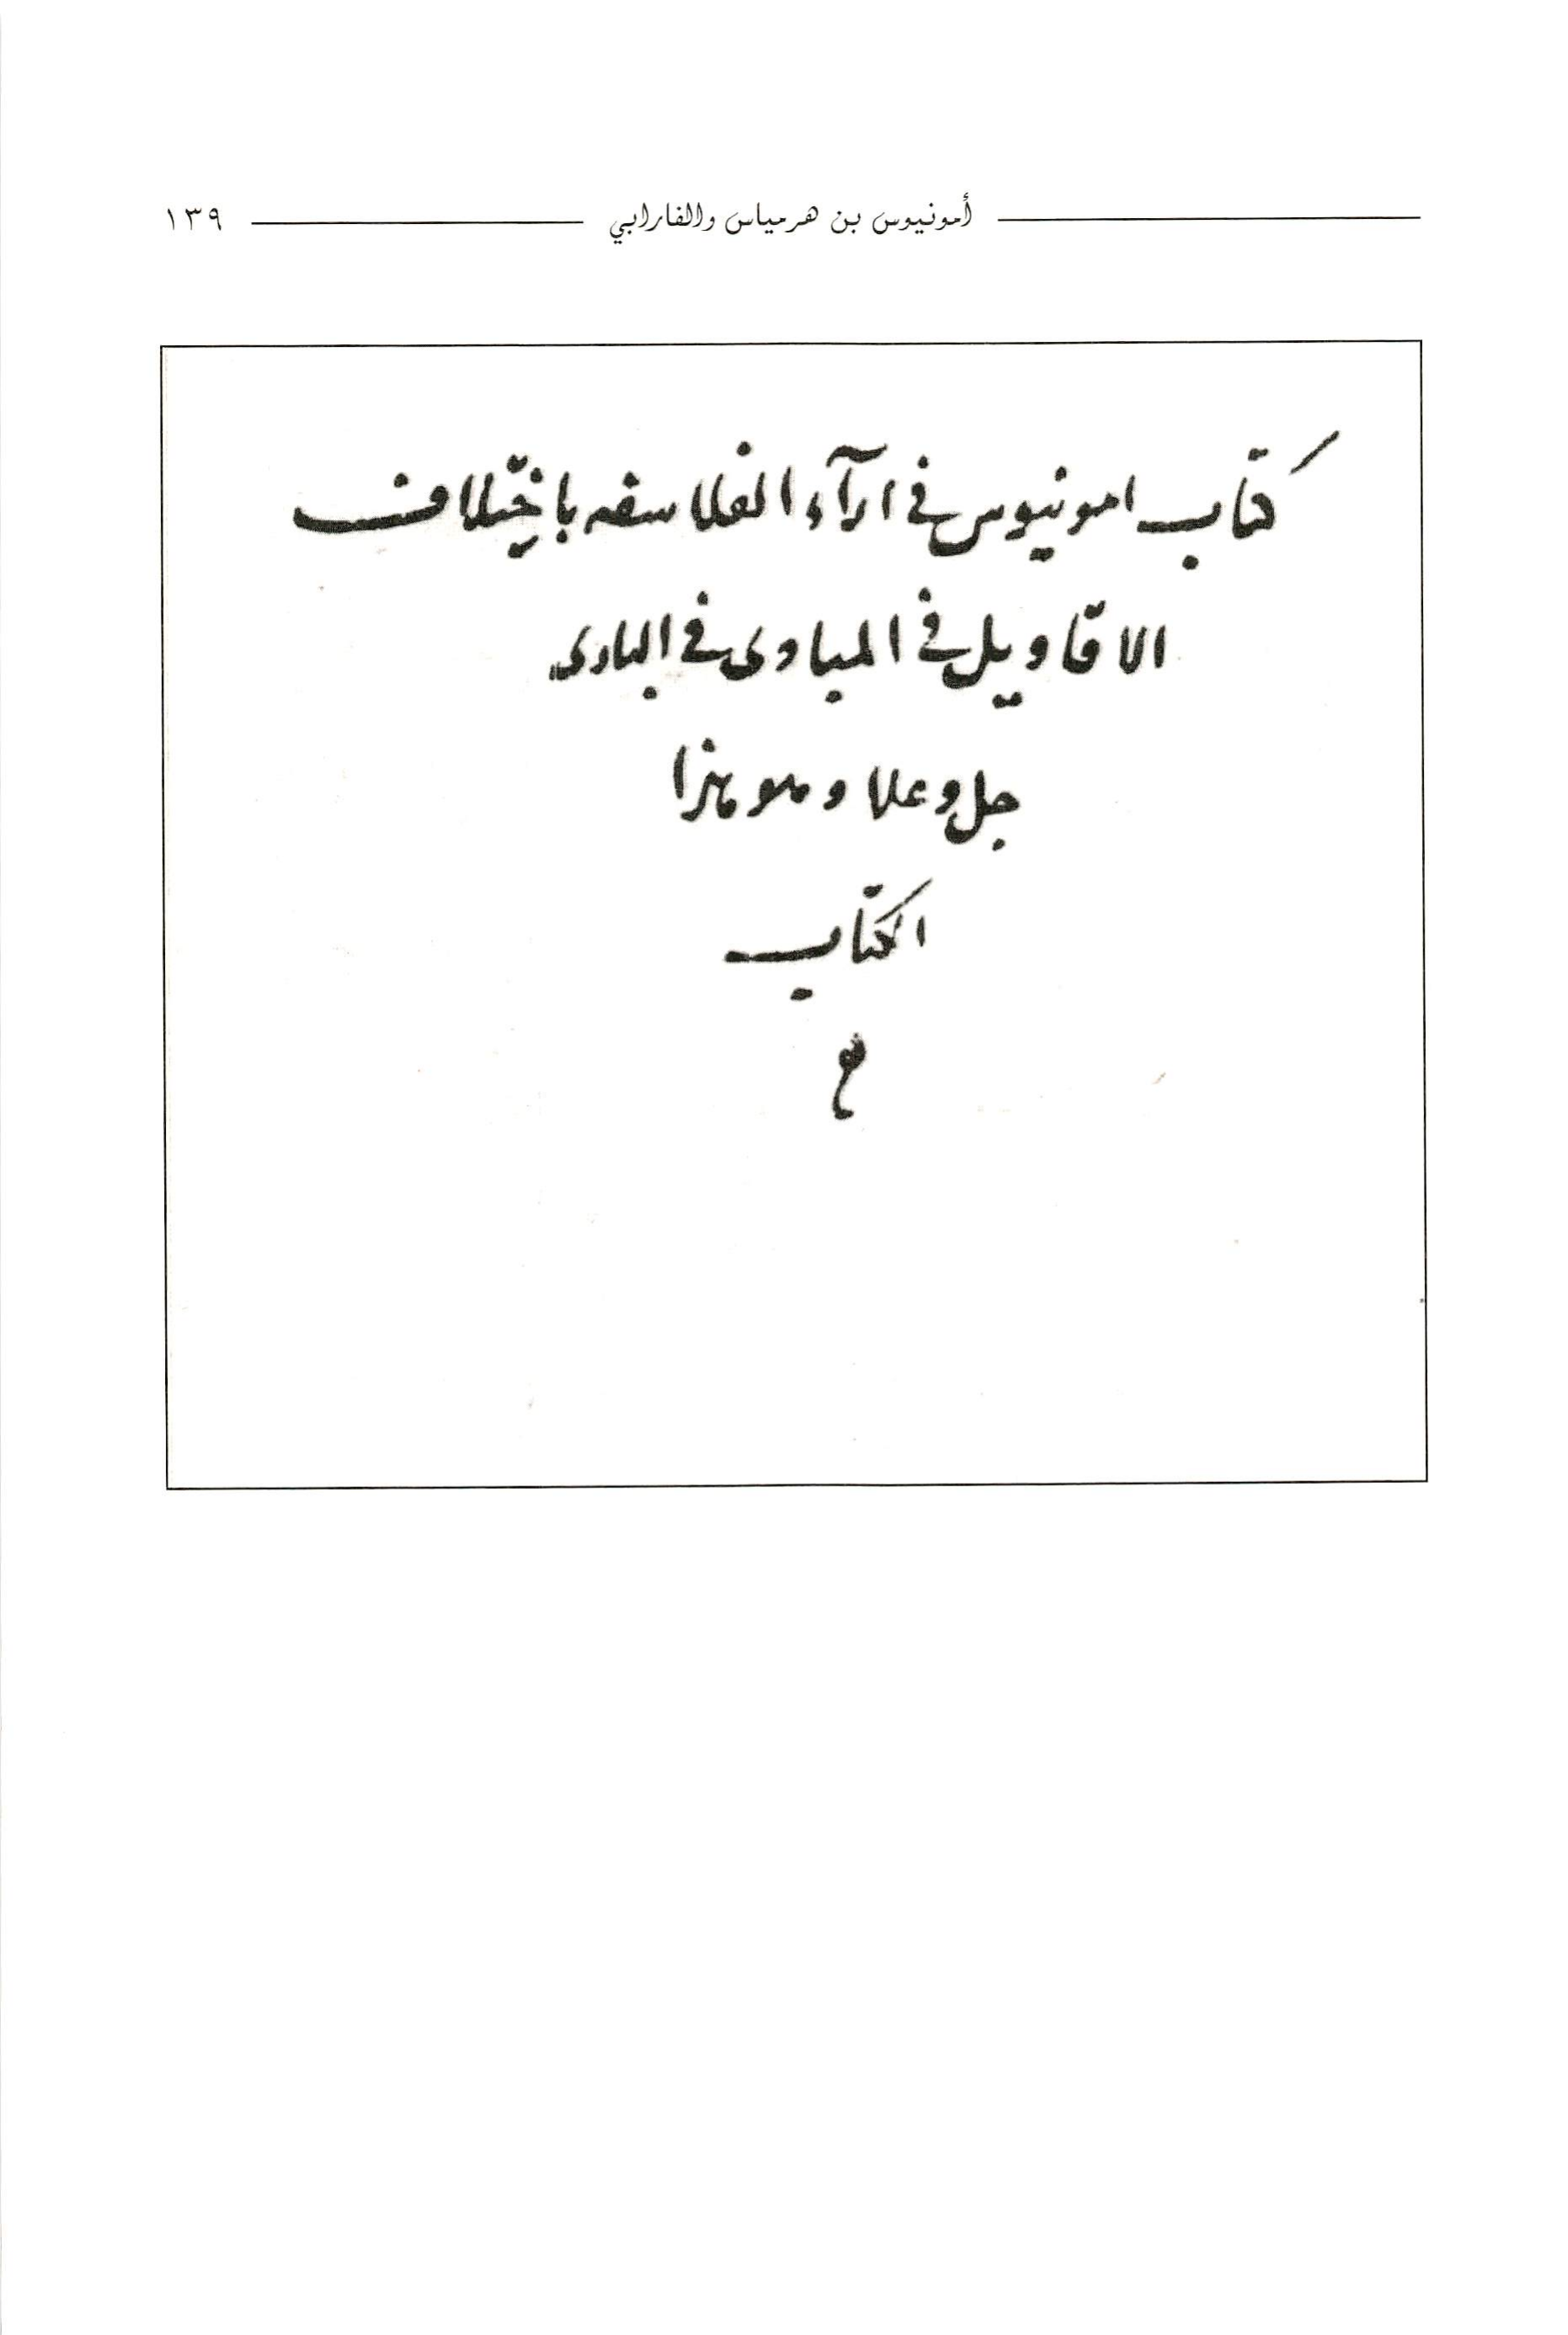 أمونيوس بن هرمياس والفارابي ١٣٩
كتاب امونيوس في ارآء الفلاسفه باختلاف
الاقاويل في المبادى في البارى
جل وعلا وهو هذا
الكتاب